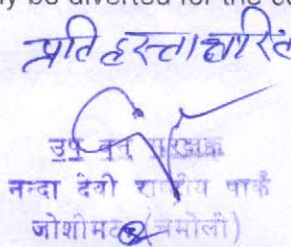 y be diverted for the c
प्रति हस्ताक्षरित
उप वन संरक्षक
नन्दा देवी राष्ट्रीय पार्क
जोशीमठ (चमोली)